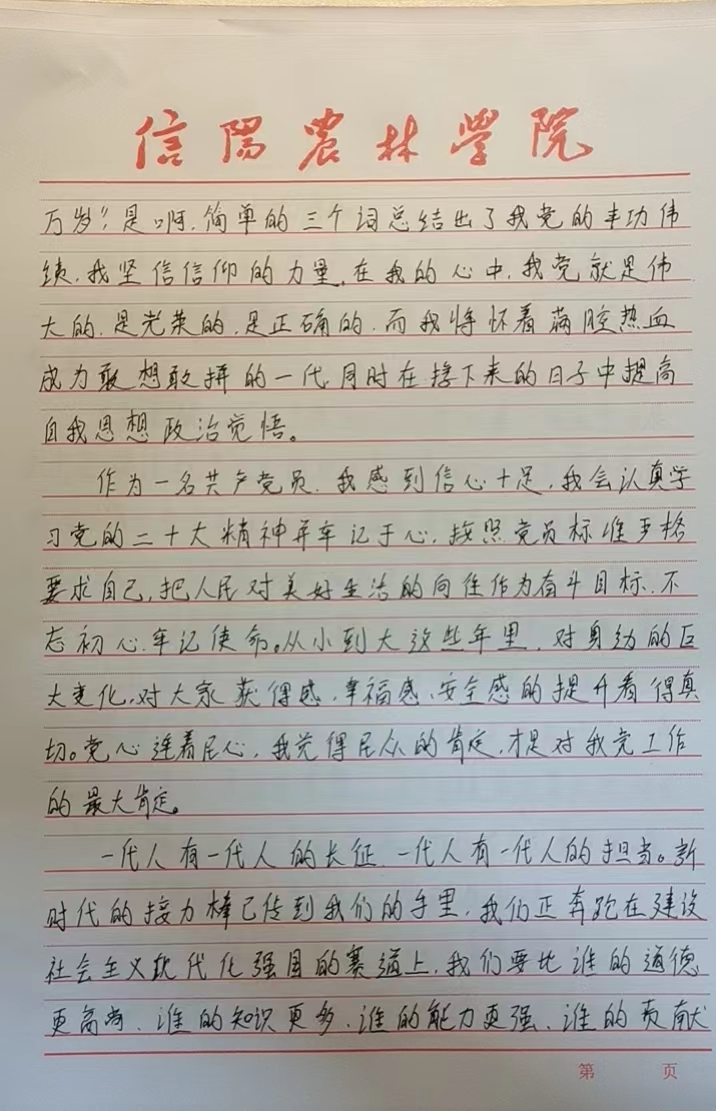 信陽農林學院
万岁”！是啊，简单的三个词总结出了我党的丰功伟
绩，我坚信信仰的力量，在我的心中，我党就是伟
大的，是光荣的，是正确的，而我将怀着满腔热血
成为敢想敢拼的一代，同时在接下来的日子中提高
自我思想政治觉悟。
作为一名共产党员，我感到信心十足，我会认真学
习党的二十大精神并牢记于心，按照党员标准严格
要求自己，把人民对美好生活的向往作为奋斗目标，不
忘初心，牢记使命。从小到大这些年里，对身边的巨
大变化，对大家获得感、幸福感、安全感的提升看得真
切。党心连着民心，我觉得民众的肯定，才是对我党工作
的最大肯定。
一代人有一代人的长征，一代人有一代人的担当。新
时代的接力棒已传到我们的手里，我们正奔跑在建设
社会主义现代化强国的赛道上，我们要比谁的道德
更高尚、谁的知识更多、谁的能力更强、谁的贡献
第 页